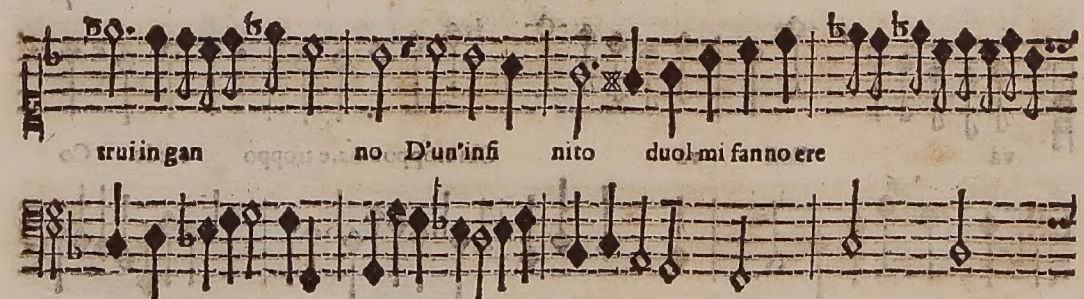 trui in gan no D'un'infi nito duol mi fanno ere